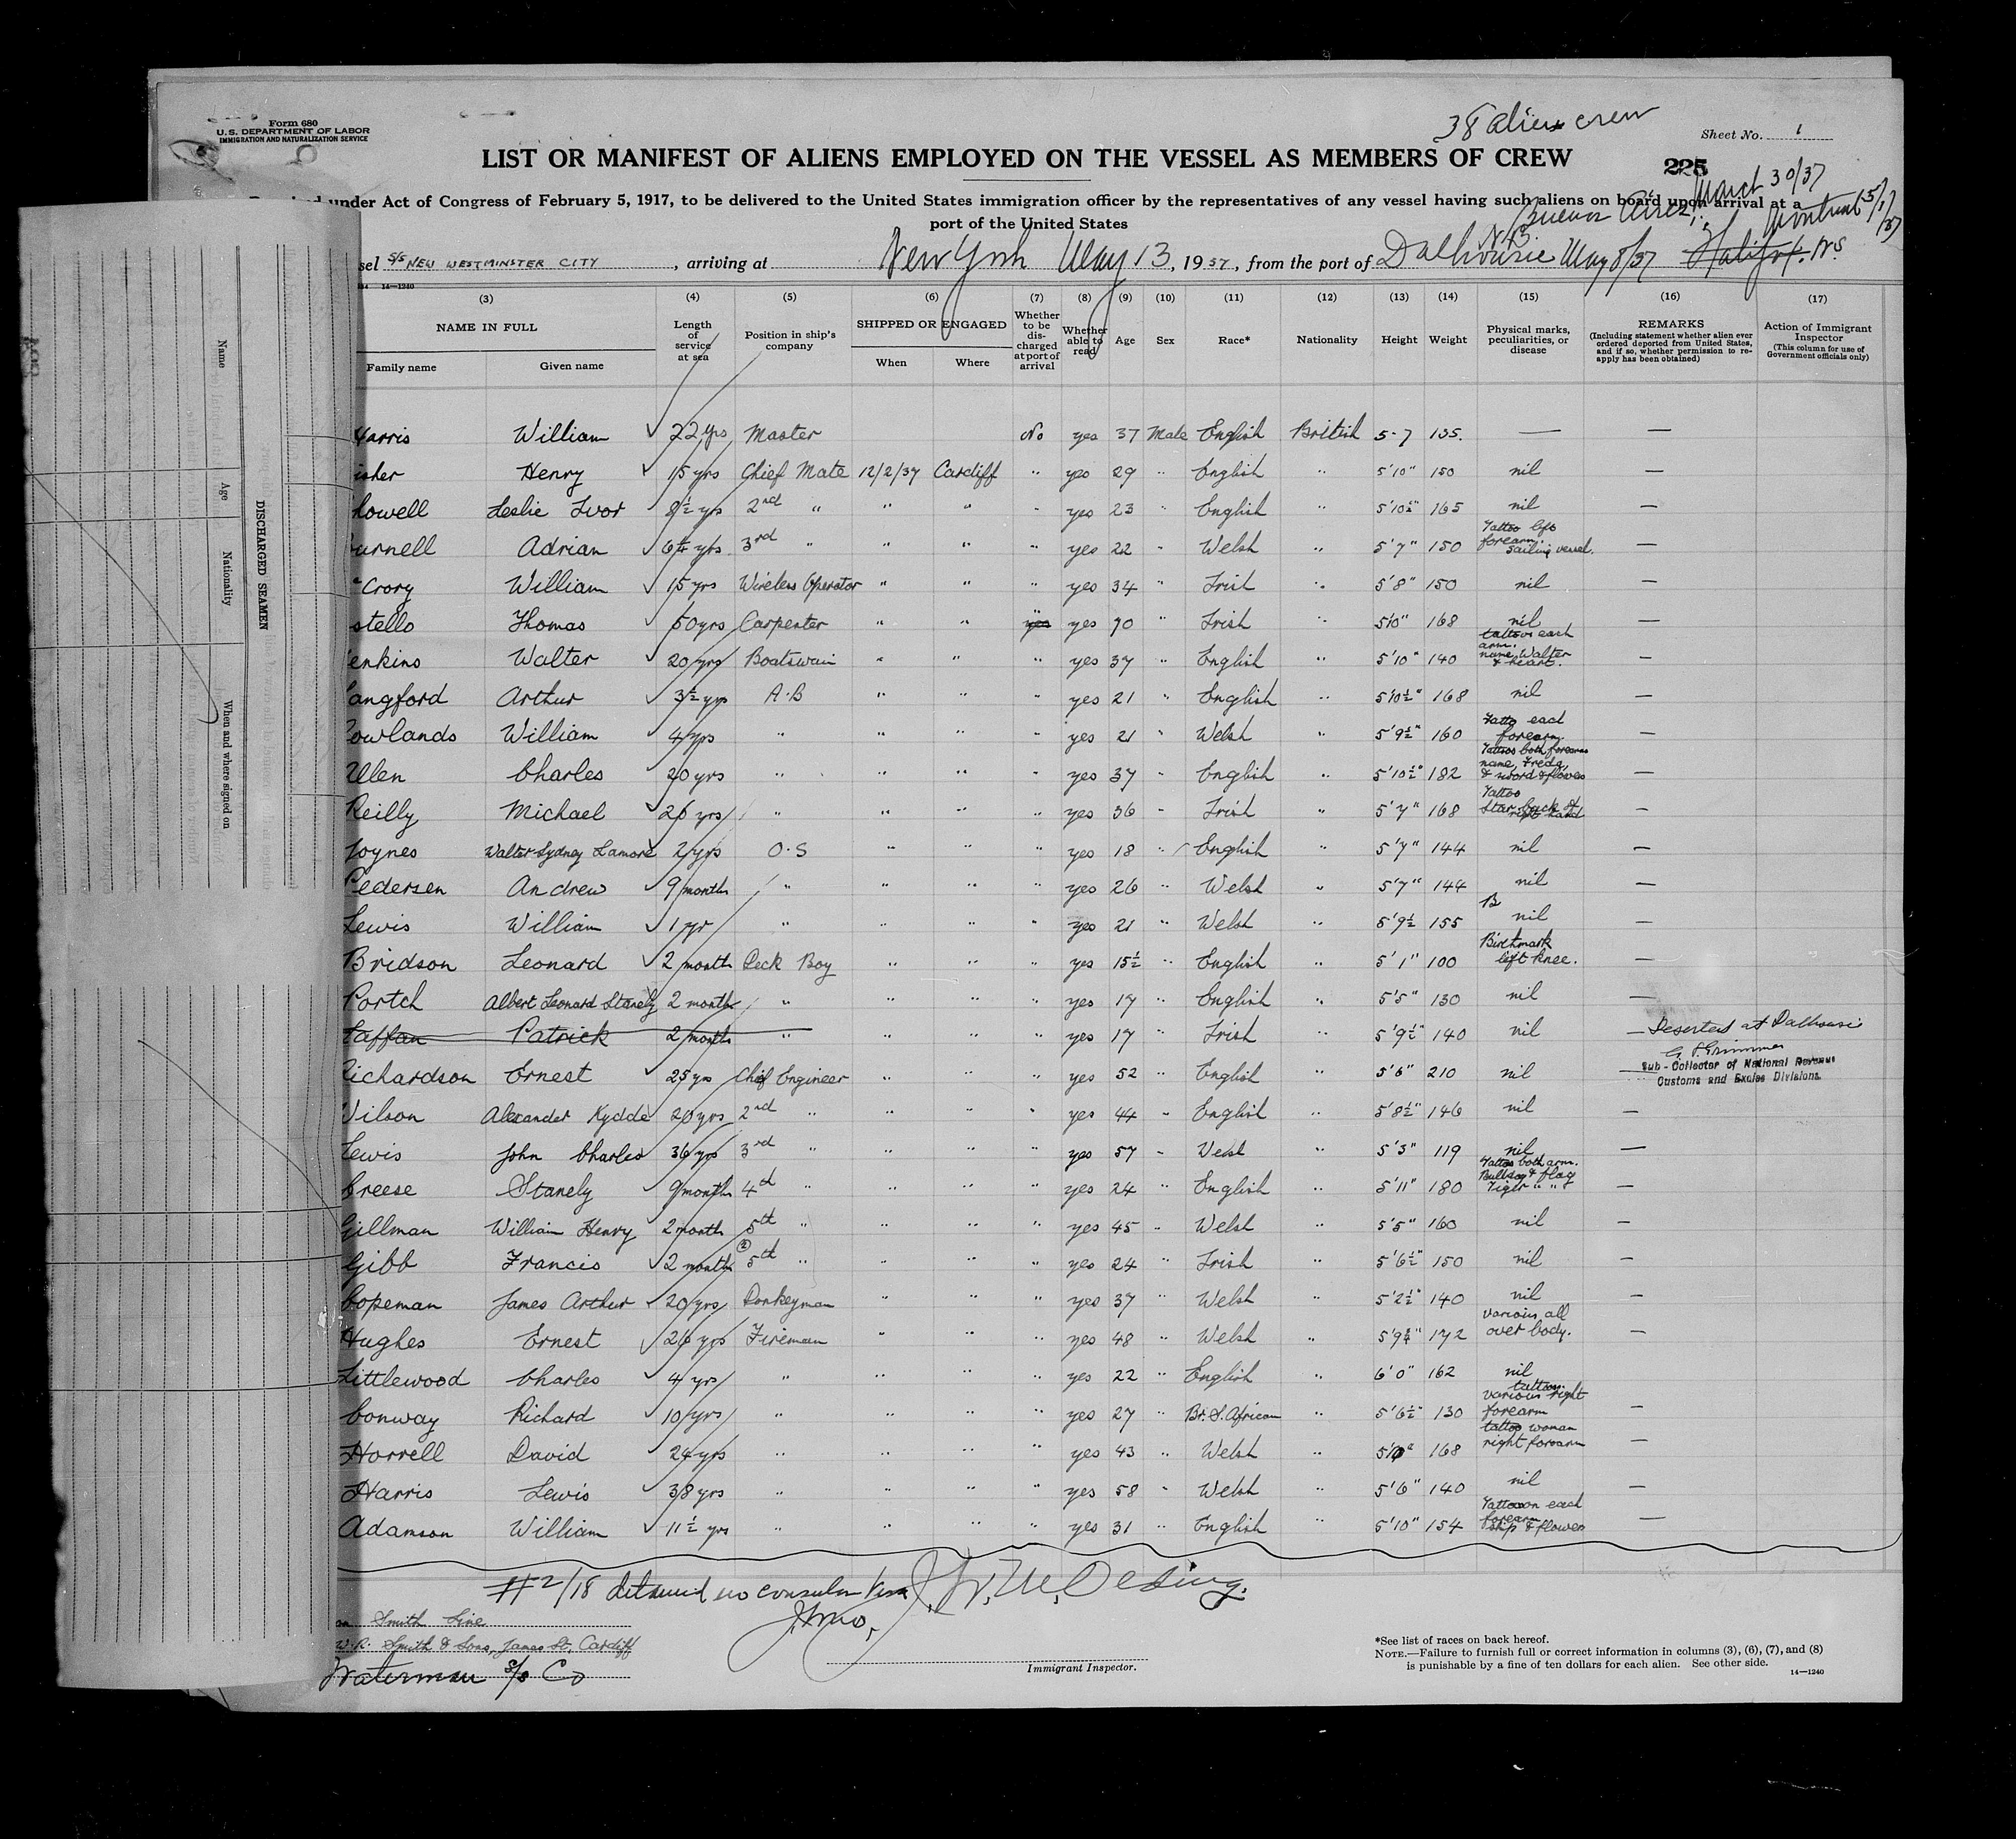 38 alien crew
Form 680
U.S. DEPARTMENT OF LABOR
IMMIGRATION AND NATURALIZATION SERVICE
Sheet No. 1
LIST OR MANIFEST OF ALIENS EMPLOYED ON THE VESSEL AS MEMBERS OF CREW
225
March 30/37
under Act of Congress of February 5, 1917, to be delivered to the United States immigration officer by the representatives of any vessel having such aliens on board upon arrival at a
port of the United States
Buenos Aires, Montreal 5/1/37
N.B.
sel S/S NEW WESTMINSTER CITY, arriving at New York May 13, 1937, from the port of Dalhousie May 8/37 Halifax. NS
14—1240
(3) (4) (5) (6) (7) (8) (9) (10) (11) (12) (13) (14) (15) (16) (17)
NAME IN FULL
Family name Given name
Length of service at sea
Position in ship's company
SHIPPED OR ENGAGED
When Where
Whether to be discharged at port of arrival
Whether able to read
Age Sex Race* Nationality Height Weight
Physical marks, peculiarities, or disease
REMARKS
(Including statement whether alien ever ordered deported from United States, and if so, whether permission to reapply has been obtained)
Action of Immigrant Inspector
(This column for use of Government officials only)
Harris William 22 yrs Master No yes 37 Male English British 5-7 135. — —
isher Henry 15 yrs Chief Mate 12/2/37 Cardiff " yes 29 " English " 5'10" 150 nil —
howell Leslie Ivor 8½ yrs 2nd " " " " yes 23 " English " 5'10½" 165 nil —
urnell Adrian 6¼ yrs 3rd " " " " yes 22 " Welsh " 5'7" 150 Tattoo left forearm. sailing vessel. —
Crory William 15 yrs Wireless Operator " " " yes 34 " Irish " 5'8" 150 nil —
stello Thomas 50 yrs Carpenter " " yes yes 70 " Irish " 5'10" 168 nil —
enkins Walter 20 yrs Boatswain " " " yes 37 " English " 5'10" 140 tattoos each arm. name Walter & heart. —
angford Arthur 3½ yrs A.B " " " yes 21 " English " 5'10½" 168 nil —
owlands William 4 yrs " " " " yes 21 " Welsh " 5'9½" 160 Tatto each forearm. —
Allen Charles 20 yrs " " " " yes 37 " English " 5'10½" 182 Tattoos both forearms name, Freda, & sword & flowers —
Reilly Michael 26 yrs " " " " yes 36 " Irish " 5'7" 168 Tattoo Star back of right hand —
Joynes Walter Sydney Lamore 2 yrs O.S " " " yes 18 " English " 5'7" 144 nil —
Pedersen Andrew 9 months " " " " yes 26 " Welsh " 5'7" 144 nil —
Lewis William 1 yr " " " " yes 21 " Welsh " 5'9½ 155 nil —
Bridson Leonard 2 month Deck Boy " " " yes 15½ " English " 5'1" 100 Birthmark left knee. —
Portch Albert Leonard Stanely 2 month " " " " yes 17 " English " 5'5" 130 nil —
Laffan Patrick 2 month " " " " yes 17 " Irish " 5'9½" 140 nil — Deserted at Dalhousie
Sub-Collector of National Revenue
Customs and Excise Divisions.
Richardson Ernest 25 yrs Chief Engineer " " " yes 52 " English " 5'6" 210 nil —
Wilson Alexander Kydde 20 yrs 2nd " " " " yes 44 " English " 5'8½" 146 nil —
Lewis John Charles 36 yrs 3rd " " " " yes 57 " Welsh " 5'3" 119 nil —
Creese Stanely 9 month 4th " " " " yes 24 " English " 5'11" 180 Tattoo both arm. Bulldog & flag Tiger " " —
Gillman William Henry 2 month 5th " " " " yes 45 " Welsh " 5'5" 160 nil —
Gibb Francis 2 month 5th " " " " yes 24 " Irish " 5'6½" 150 nil —
Copeman James Arthur 20 yrs Donkeyman " " " yes 37 " Welsh " 5'2½" 140 nil —
Hughes Ernest 26 yrs Fireman " " " yes 48 " Welsh " 5'9¾" 172 various all over body. —
Littlewood Charles 4 yrs " " " " yes 22 " English " 6'0" 162 nil —
Conway Richard 10 yrs " " " " yes 27 " Br. S. African " 5'6½" 130 tattoos various right forearm —
Horrell David 24 yrs " " " " yes 43 " Welsh " 5'10" 168 tattoo woman right forearm —
Harris Lewis 38 yrs " " " " yes 58 " Welsh " 5'6" 140 nil —
Adamson William 11½ yrs " " " " yes 31 " English " 5'10" 154 Tattoo on each forearm ship & flower —
#2/18 detained no consular visa
Smith Line
W.R. Smith & Sons, James St, Cardiff
Waterman S/S Co
Immigrant Inspector.
*See list of races on back hereof.
NOTE.—Failure to furnish full or correct information in columns (3), (6), (7), and (8)
is punishable by a fine of ten dollars for each alien. See other side.
14—1240
DISCHARGED SEAMEN
Name
Age
Nationality
When and where signed on